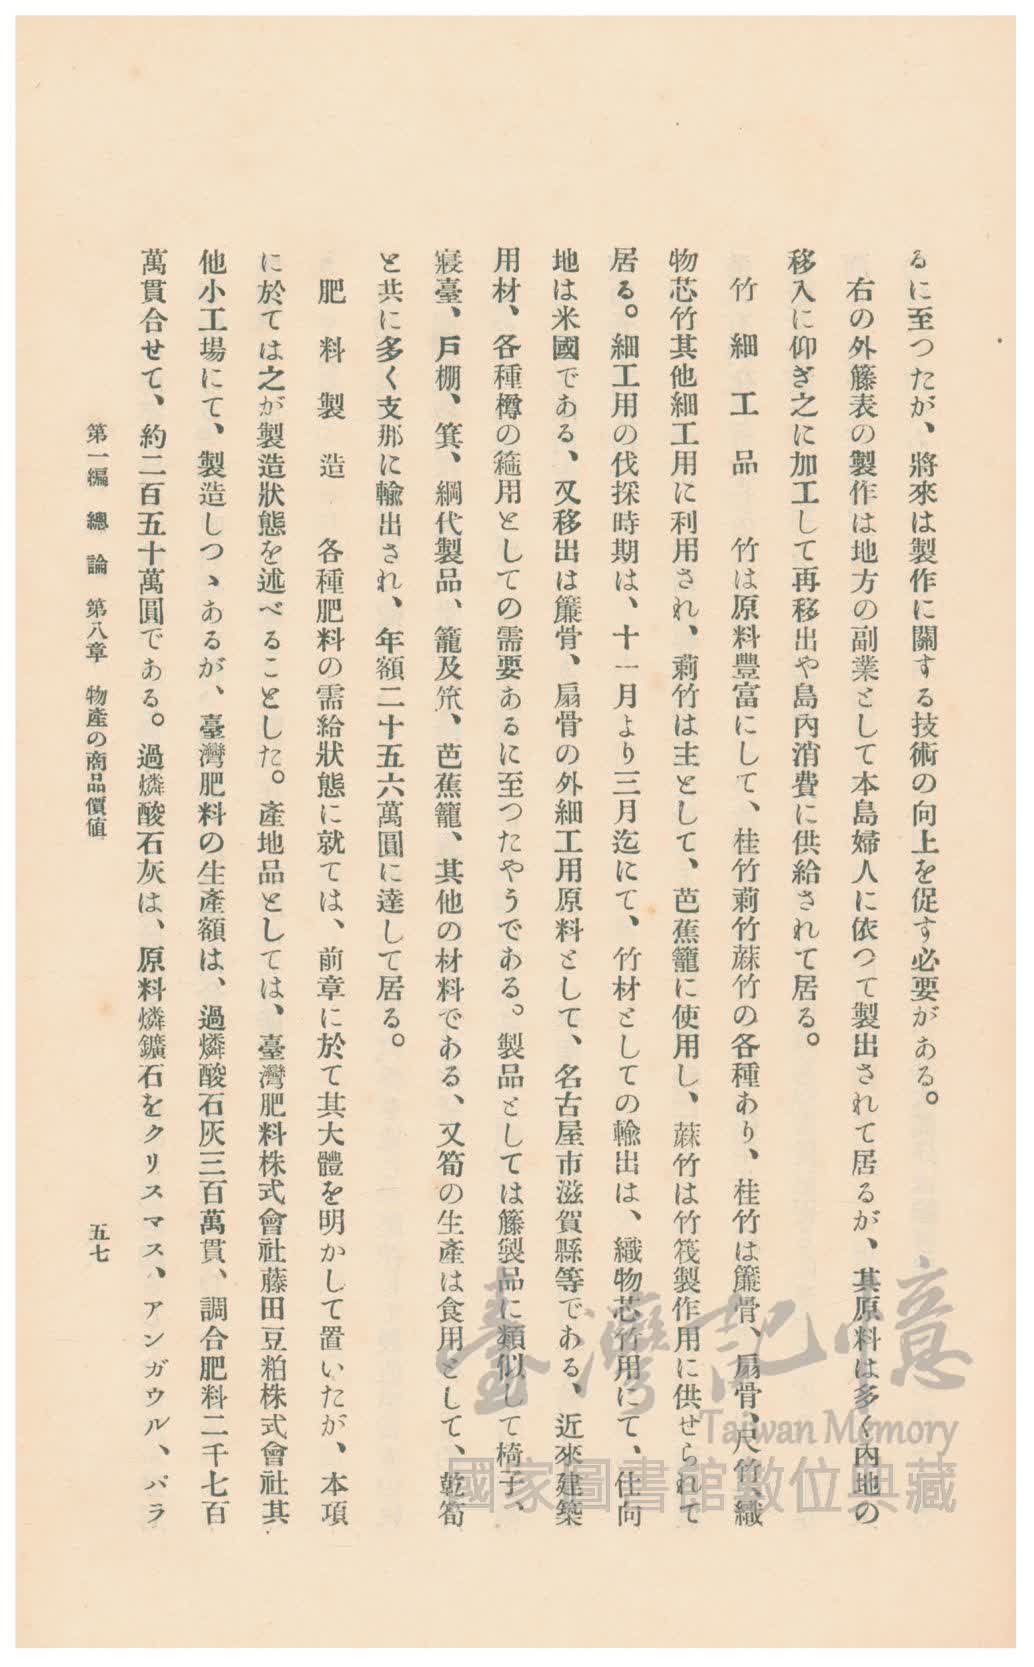 るに至つたが、將來は製作に關する技術の向上を促す必要がある。
右の外籐表の製作は地方の副業として本島婦人に依つて製出されて居るが、其原料は多く內地の
移入に仰ぎ之に加工して再移出や島內消費に供給されて居る。
竹細工品　竹は原料豐富にして、桂竹莿竹蔴竹の各種あり、桂竹は簾骨、扇骨、尺竹、織
物芯竹其他細工用に利用され、莿竹は主として、芭蕉籠に使用し、蔴竹は竹筏製作用に供せられて
居る。細工用の伐採時期は、十一月より三月迄にて、竹材としての輸出は、織物芯竹用にて、仕向
地は米國である、又移出は簾骨、扇骨の外細工用原料として、名古屋市滋賀縣等である、近來建築
用材、各種樽の箍用としての需要あるに至つたやうである。製品としては籐製品に類似して椅子、
寢臺、戶棚、箕、綱代製品、籠及笊、芭蕉籠、其他の材料である、又筍の生產は食用として、乾筍
と共に多く支那に輸出され、年額二十五六萬圓に達して居る。
肥料製造　各種肥料の需給狀態に就ては、前章に於て其大體を明かして置いたが、本項
に於ては之が製造狀態を述べることとした。產地品としては、臺灣肥料株式會社藤田豆粕株式會社其
他小工場にて、製造しつゝあるが、臺灣肥料の生產額は、過燐酸石灰三百萬貫、調合肥料二千七百
萬貫合せて、約二百五十萬圓である。過燐酸石灰は、原料燐鑛石をクリスマス、アンガウル、パラ
第一編　總論　第八章　物產の商品價値
五七
臺灣記憶
Taiwan Memory
國家圖書館數位典藏